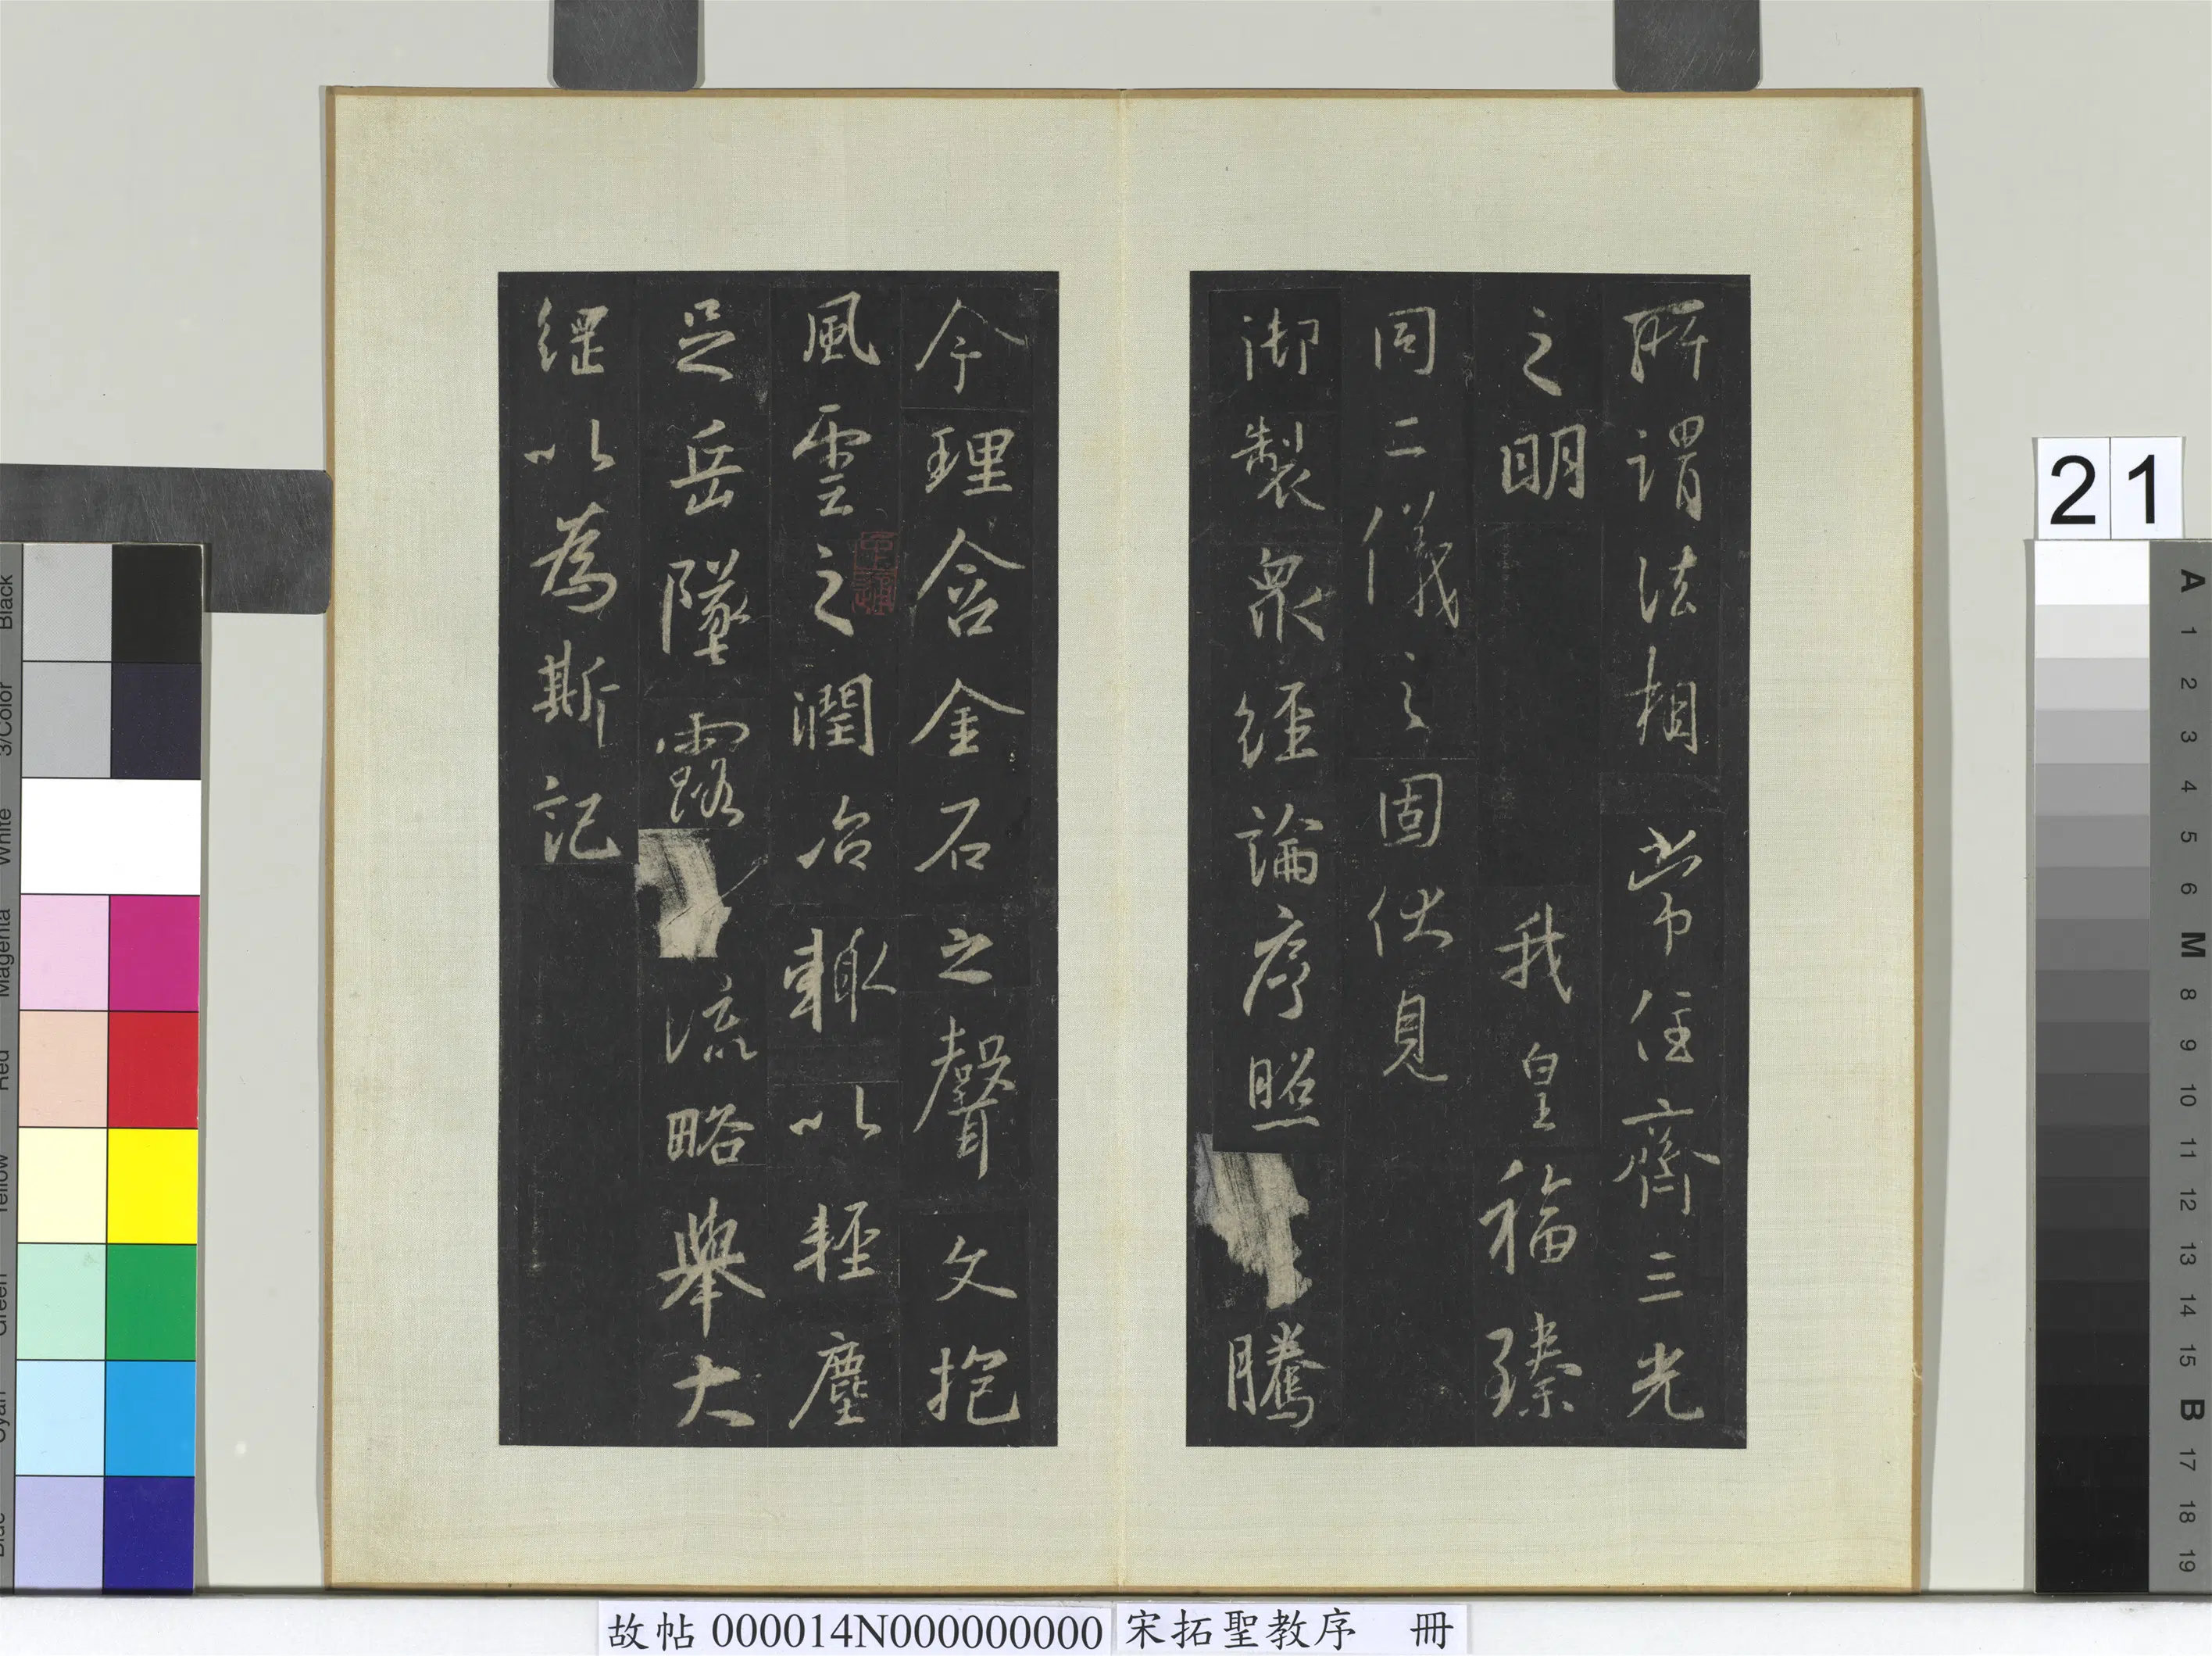 所謂法相常住齊三光
之明我皇福臻
同二儀之固伏見
御製眾經論序照
騰
今理含金石之聲文抱
風雲之潤治輙以輕塵
足岳墜露
流略舉大
綱以為斯記
故帖 000014N000000000 宋拓聖教序 冊
21
Black
3/Color
White
Magenta
Red
Yellow
Green
Cyan
Blue
A
1
2
3
4
5
6
M
8
9
10
11
12
13
14
15
B
17
18
19